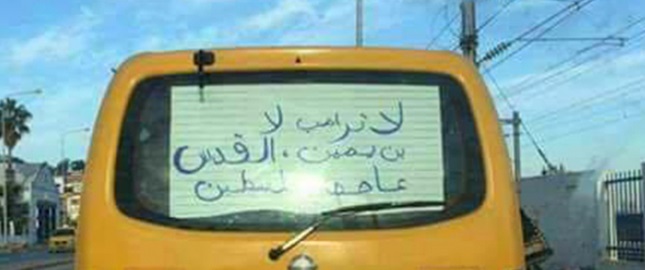 لا ترامب لا
بن يمين، القدس
عاصمة فلسطين